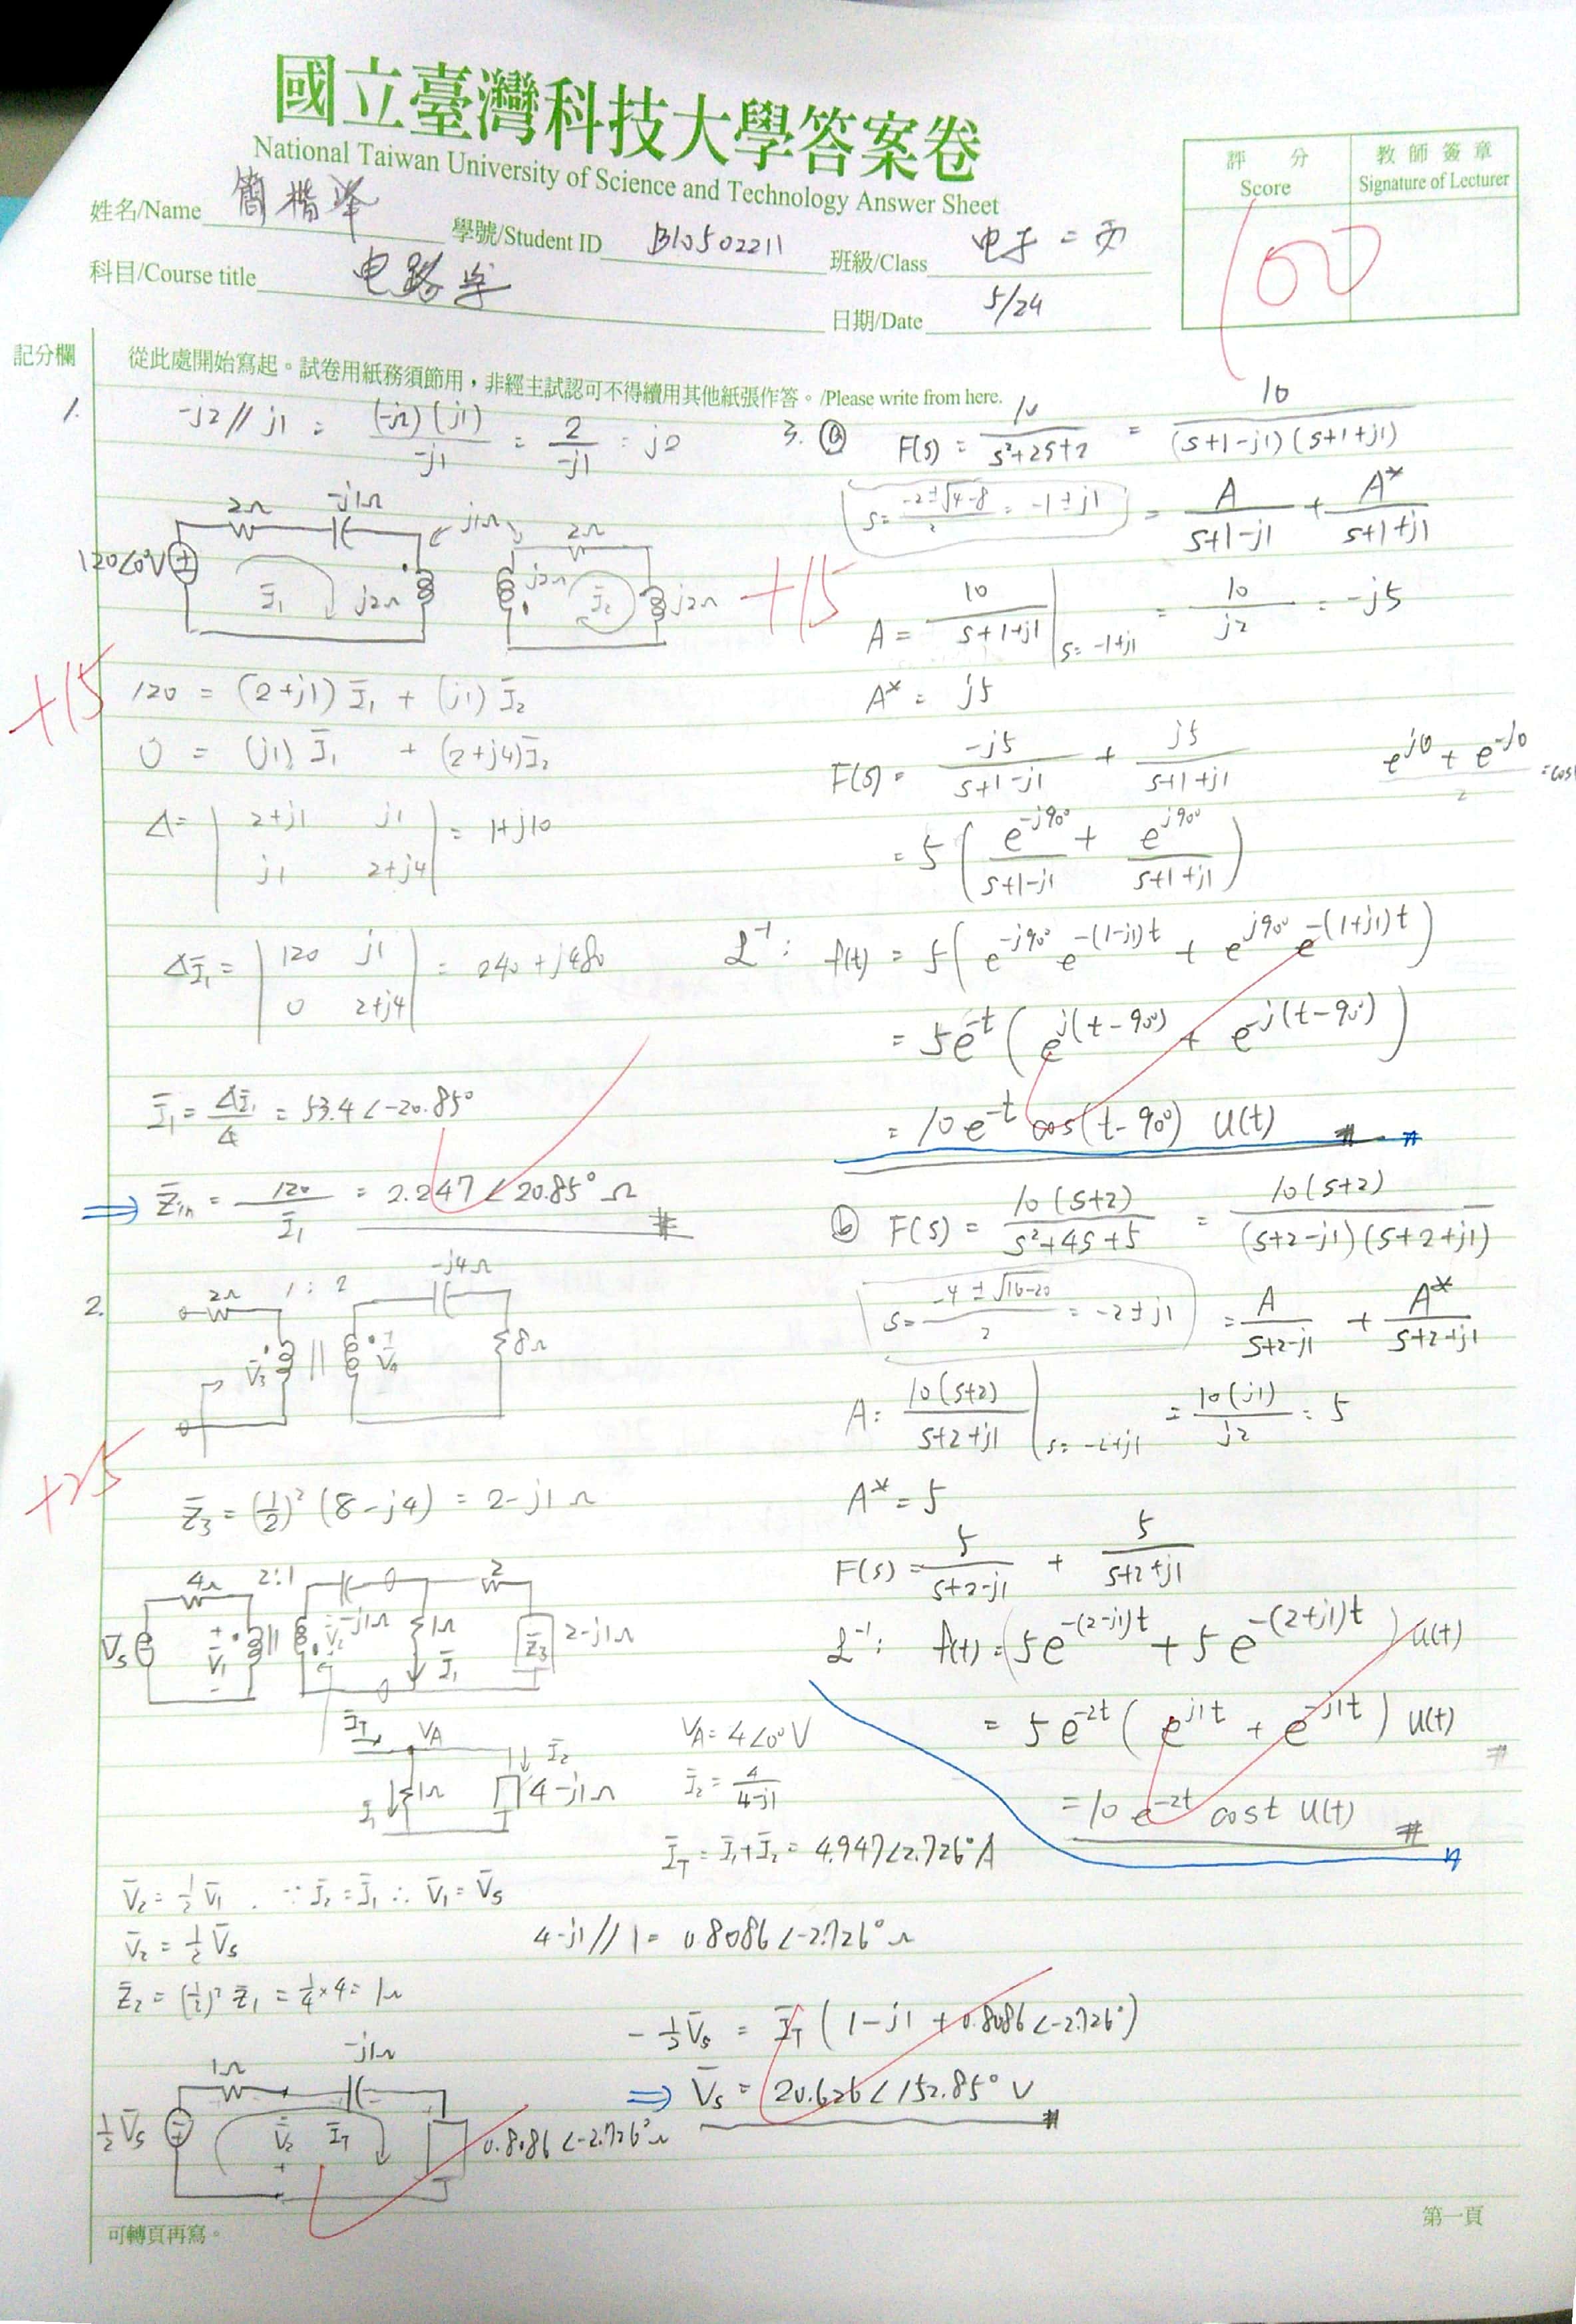 國立臺灣科技大學答案卷
National Taiwan University of Science and Technology Answer Sheet
姓名/Name 簡楷
學號/Student ID B10502211
班級/Class 电子二丙
科目/Course title 电路学
日期/Date 5/24
評分 Score 100
教師簽章 Signature of Lecturer
記分欄
從此處開始寫起。試卷用紙務須節用,非經主試認可不得續用其他紙張作答。/Please write from here.
1.
-j2 // j1 = (-j2)(j1) / -j1 = 2 / -j1 = j2
2Ω -j1Ω j1Ω 2Ω
120∠0°V Ī₁ j2Ω j2Ω Ī₂ j2Ω
+15
120 = (2+j1) Ī₁ + (j1) Ī₂
0 = (j1) Ī₁ + (2+j4) Ī₂
Δ = | 2+j1 j1 | = 1+j10
j1 2+j4
ΔĪ₁ = | 120 j1 | = 240+j480
0 2+j4
Ī₁ = ΔĪ₁ / Δ = 53.4∠-20.85°
⇒ Z̄in = 120 / Ī₁ = 2.247∠20.85° Ω #
2.
2Ω 1:2 -j4Ω
V̄₃ V̄₄ 8Ω
+25
Z̄₃ = (1/2)² (8-j4) = 2-j1 Ω
4Ω 2:1 -j1Ω 2
V̄s V̄₁ V̄₂ 1Ω Ī₁ Z̄₃ 2-j1Ω
ĪT VA Ī₂
Ī₁ 1Ω 4-j1Ω
VA = 4∠0° V
Ī₂ = 4 / 4-j1
ĪT = Ī₁+Ī₂ = 4.947∠2.726° A
V̄₂ = 1/2 V̄₁ . ∵ Ī₂ = Ī₁ ∴ V̄₁ = V̄s
V̄₂ = 1/2 V̄s
4-j1 // 1 = 0.8086∠-2.726° Ω
Z̄₂ = (1/2)² Z̄₁ = 1/4 × 4 = 1Ω
1Ω -j1Ω
1/2 V̄s V̄₂ ĪT 0.8086∠-2.726° Ω
-1/2 V̄s = ĪT (1-j1 + 0.8086∠-2.726°)
⇒ V̄s = 20.626∠152.85° V #
3. ⓐ F(s) = 10 / s²+2s+2 = 10 / (s+1-j1)(s+1+j1)
s = -2±√4-8 / 2 = -1±j1
= A / s+1-j1 + A* / s+1+j1
+15
A = 10 / s+1+j1 | s=-1+j1 = 10 / j2 = -j5
A* = j5
F(s) = -j5 / s+1-j1 + j5 / s+1+j1
e^jθ + e^-jθ / 2 = cos
= 5 ( e^-j90° / s+1-j1 + e^j90° / s+1+j1 )
ℒ⁻¹: f(t) = 5( e^-j90° e^-(1-j1)t + e^j90° e^-(1+j1)t )
= 5e^-t ( e^j(t-90°) + e^-j(t-90°) )
= 10 e^-t cos(t-90°) u(t) #
ⓑ F(s) = 10(s+2) / s²+4s+5 = 10(s+2) / (s+2-j1)(s+2+j1)
s = -4±√16-20 / 2 = -2±j1
= A / s+2-j1 + A* / s+2+j1
A = 10(s+2) / s+2+j1 | s=-2+j1 = 10(j1) / j2 = 5
A* = 5
F(s) = 5 / s+2-j1 + 5 / s+2+j1
ℒ⁻¹: f(t) = (5e^-(2-j1)t + 5e^-(2+j1)t) u(t)
= 5e^-2t ( e^j1t + e^-j1t ) u(t) #
= 10 e^-2t cost u(t) #
可轉頁再寫。
第一頁